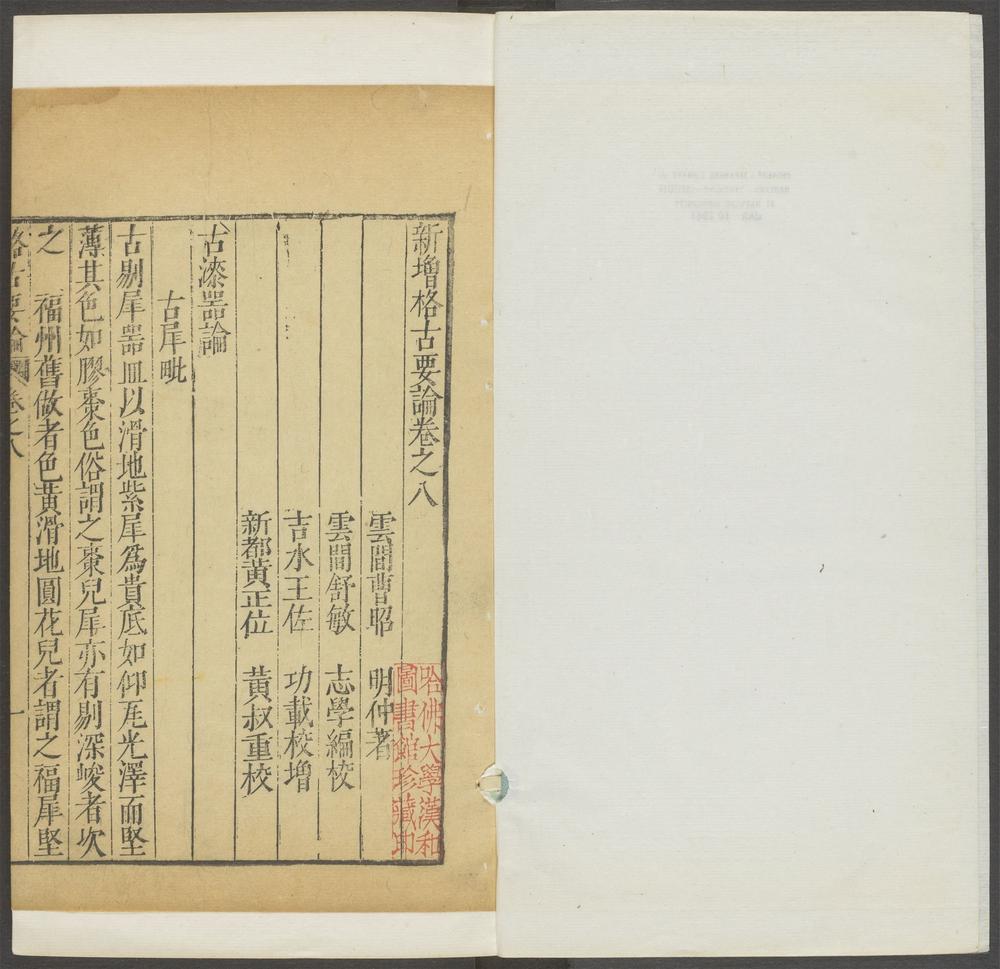 新增格古要論卷之八
雲間曹昭 明仲著
雲間舒敏 志學編校
吉水王佐 功載校增
新都黃正位 黃叔重校
古漆噐論
古犀毗
古剔犀噐皿以滑地紫犀爲貴底如仰瓦光澤而堅
薄其色如膠棗色俗謂之棗兒犀亦有剔深峻者次
之 福州舊做者色黃滑地圓花兒者謂之福犀堅
格古要論 卷之八 一
哈佛大學漢和
圖書館珍藏印